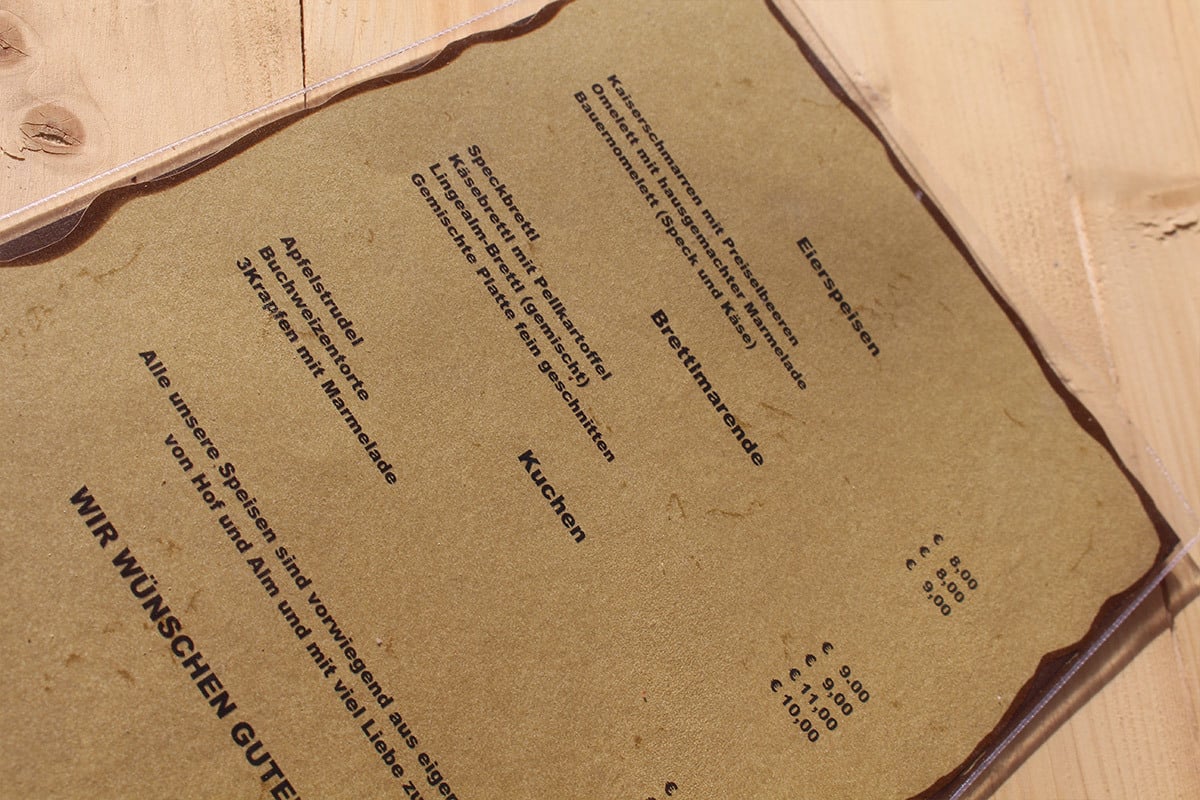 Eierspeisen
Kaiserschmarren mit Preiselbeeren € 8,00
Omelett mit hausgemachter Marmelade € 8,00
Bauernomelett (Speck und Käse) € 9,00
Brettlmarende
Speckbrettl € 9.00
Käsebrettl mit Pellkartoffel € 9,00
Lingealm-Brettl (gemischt) € 11,00
Gemischte Platte fein geschnitten € 10,00
Kuchen
Apfelstrudel €
Buchweizentorte €
3Krapfen mit Marmelade
Alle unsere Speisen sind vorwiegend aus eigen
von Hof und Alm und mit viel Liebe zu
WIR WÜNSCHEN GUTE